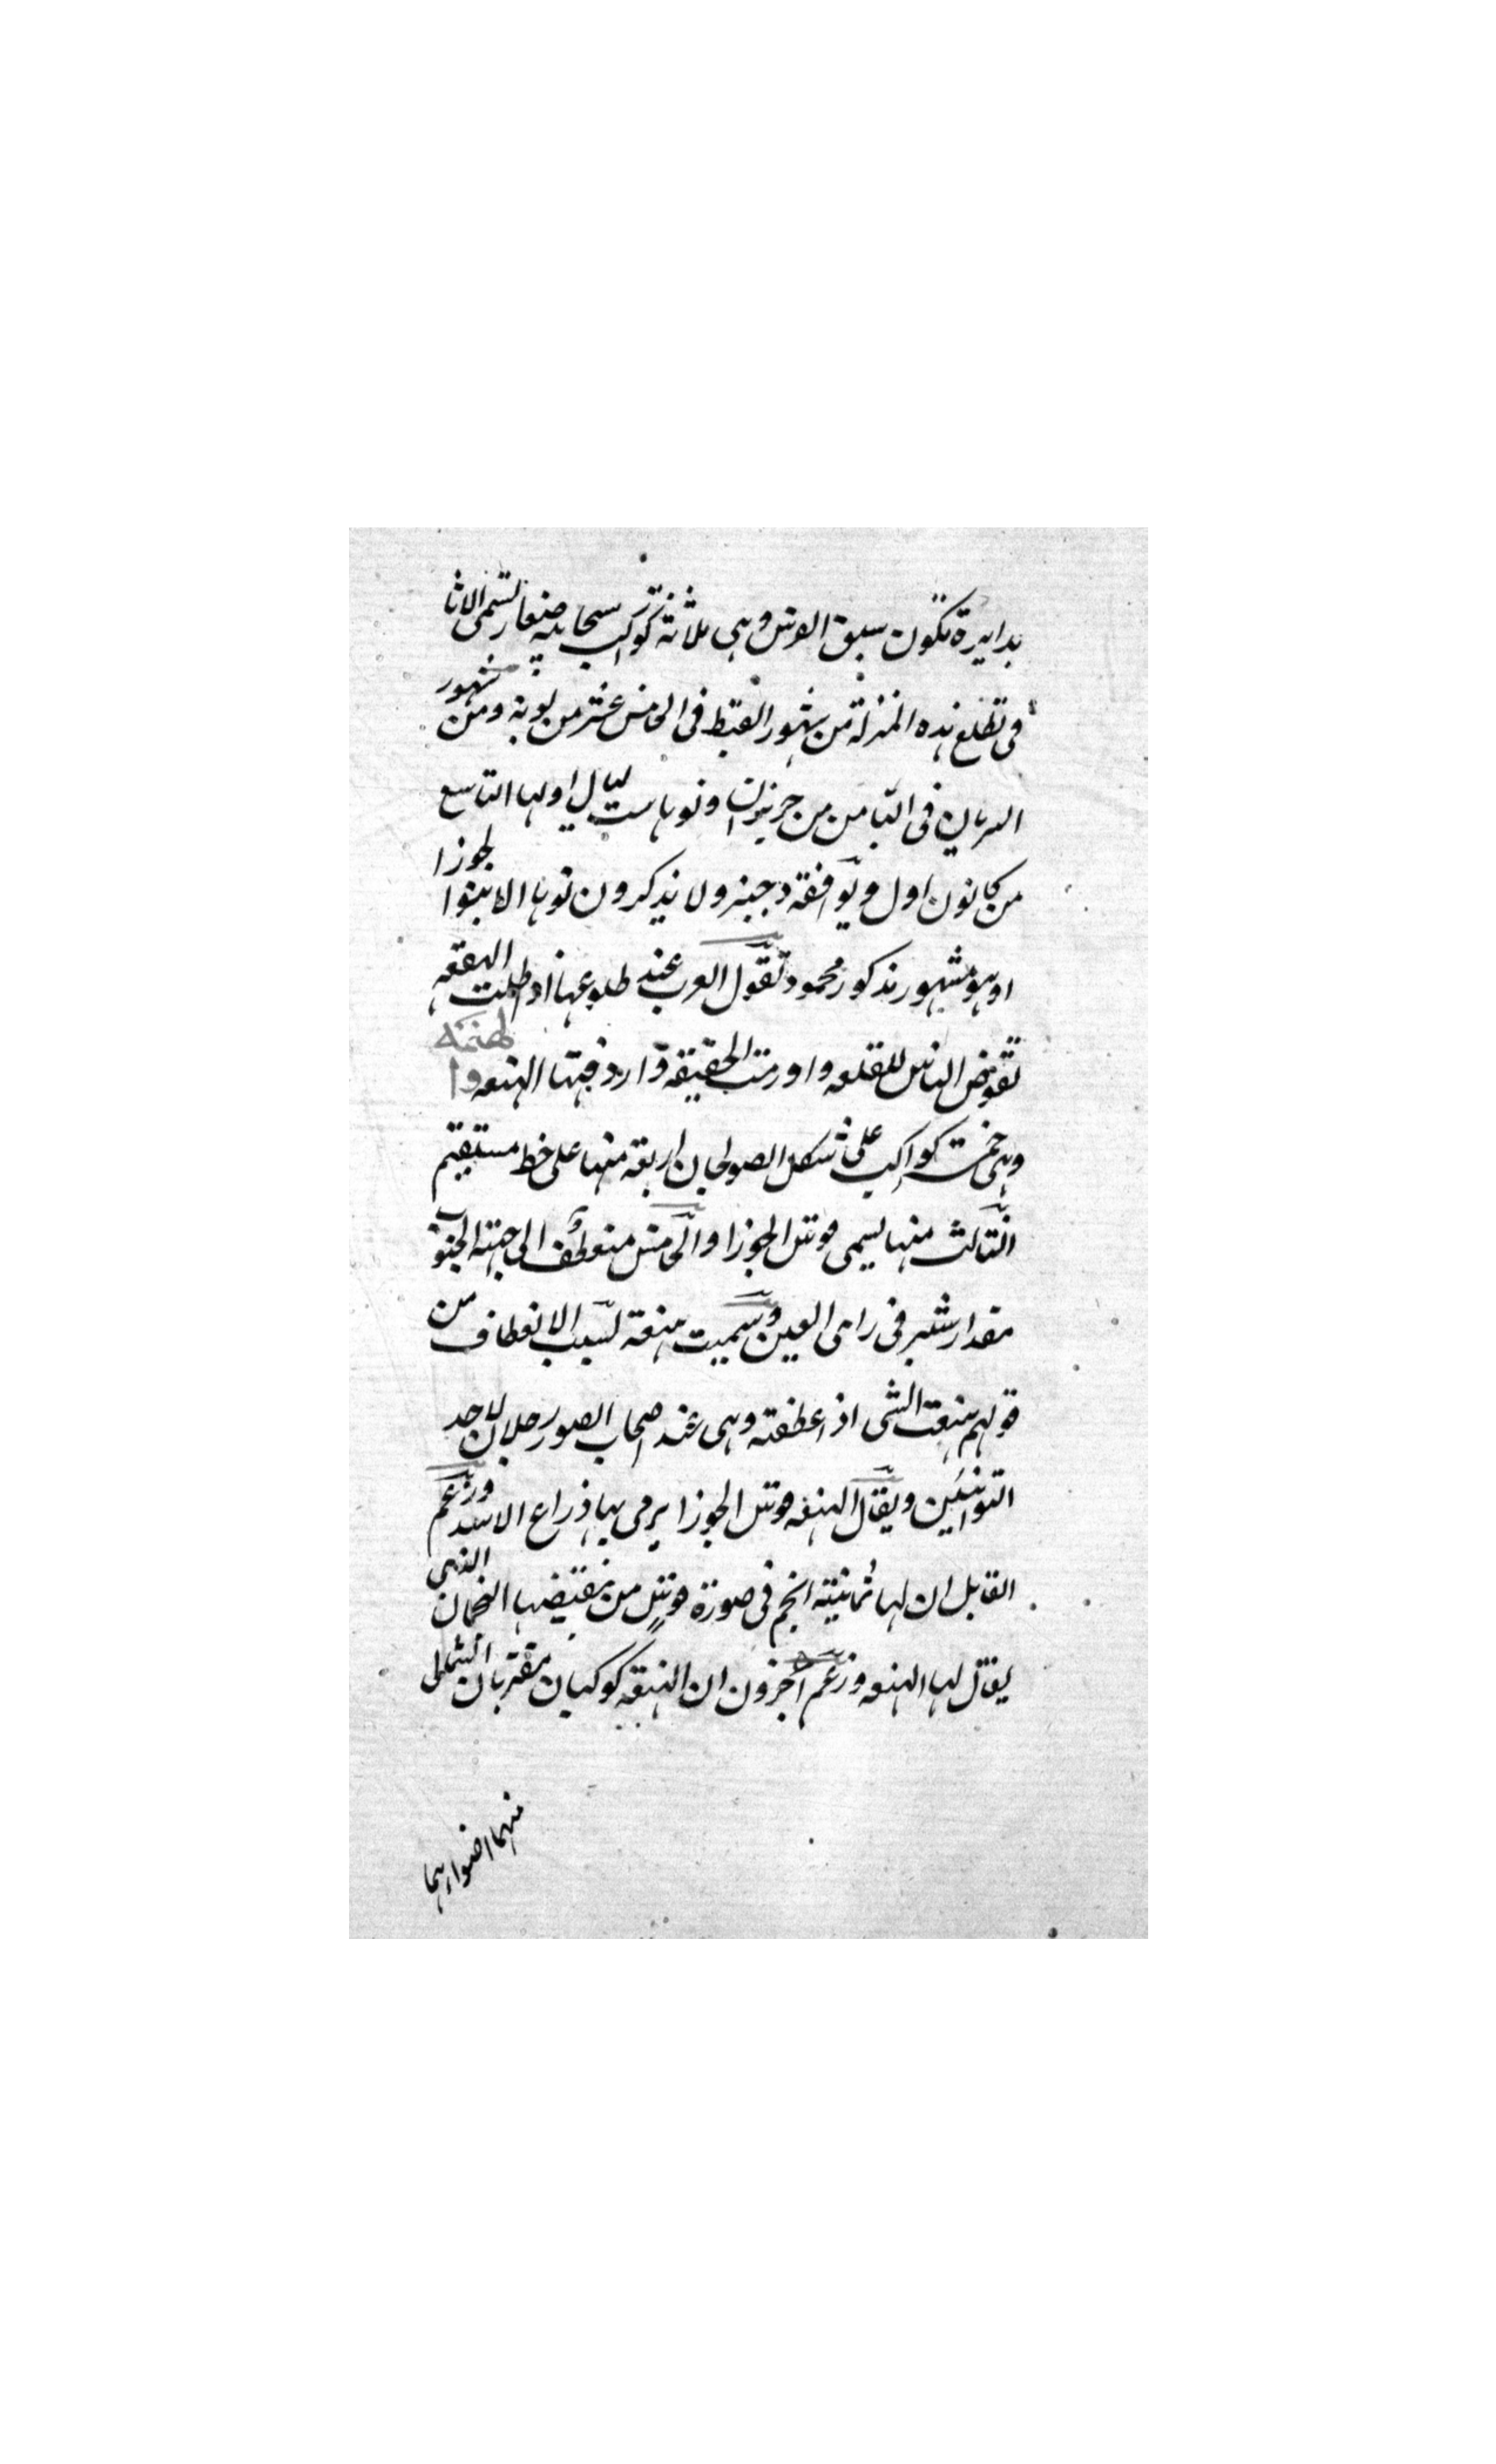 بدايرة تكون سبق الفرس وهى ثلاثة كواكب سحابيه صغار تسمى الاثا
فى تطلع هذه المنزلة من شهور القبط فى الخامس عشر من بونه ومن شهور
السريان فى الثامن من حزيران ونوها ست ليال اولها التاسع
من كانون اول ويوافقه دجنبر ولا يذكرون نوها الا بنوا الجوزا
اوهو مشهور مذكور محمود تقول العرب عند طلوعها اذ اطلعت الهقعه
تقوض الناس للقلعه واو اردفتها الهنعه وا لهنعه
وهى خمسة كواكب على شكل الصولجان اربعة منها على خط مستقيم
الثالث منها يسمى قوس الجوزا والخامس منعطف الى جهة الجنوب
مقدار شبر فى راى العين وسميت هنعة لسبب الانعطاف من
قولهم هنعت الشى اذ اعطفته وهى عند اصحاب الصور رجلان لاحد
التوامين ويقال الهنعه قوس الجوزا يرمى بها ذراع الاسد وزعم
القايل ان لها ثمانية انجم فى صورة قوس من مقبضها النجمان الذى
يقال لها الهنعه وزعم اخرون ان الهنعة كوكبان مقتربان الشمالى
منهما اضواءهما